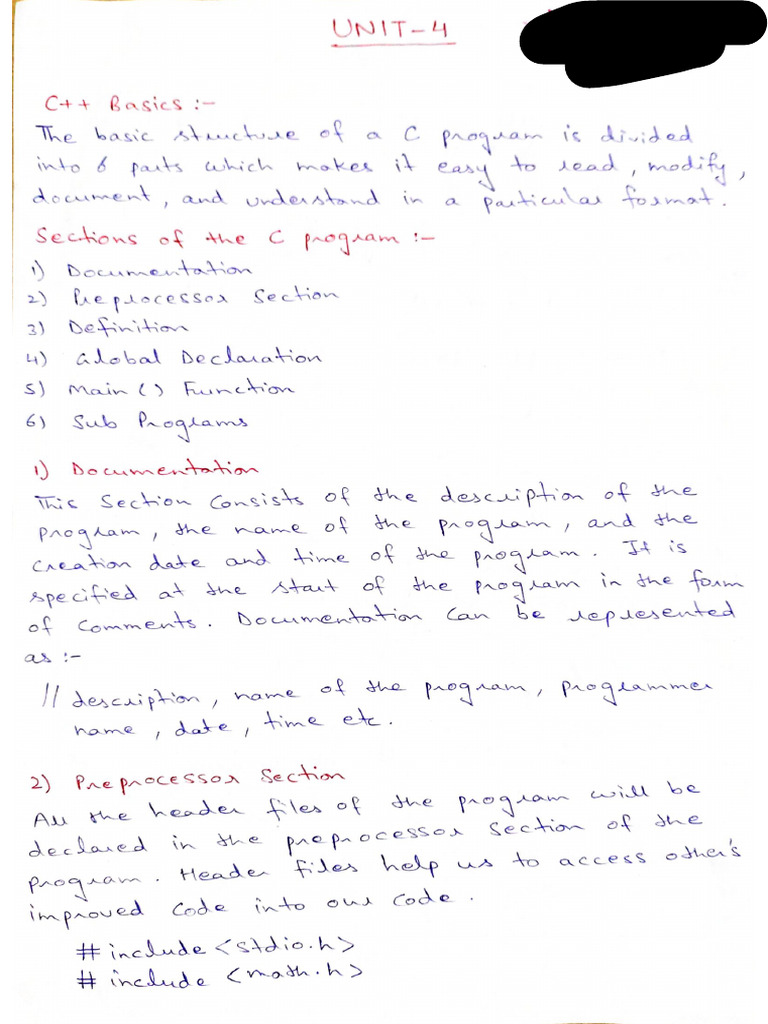 UNIT-4
C++ Basics :-
The basic structure of a C program is divided
into 6 parts which makes it easy to read, modify,
document, and understand in a particular format.
Sections of the C program :-
1) Documentation
2) Preprocessor Section
3) Definition
4) Global Declaration
5) Main () Function
6) Sub Programs
1) Documentation
This Section Consists of the description of the
program, the name of the program, and the
creation date and time of the program. It is
specified at the start of the program in the form
of comments. Documentation Can be represented
as :-
// description, name of the program, programmer
name, date, time etc.
2) Preprocessor Section
All the header files of the program will be
declared in the preprocessor Section of the
program. Header files help us to access other's
improved Code into our Code.
# include <stdio.h>
# include <math.h>